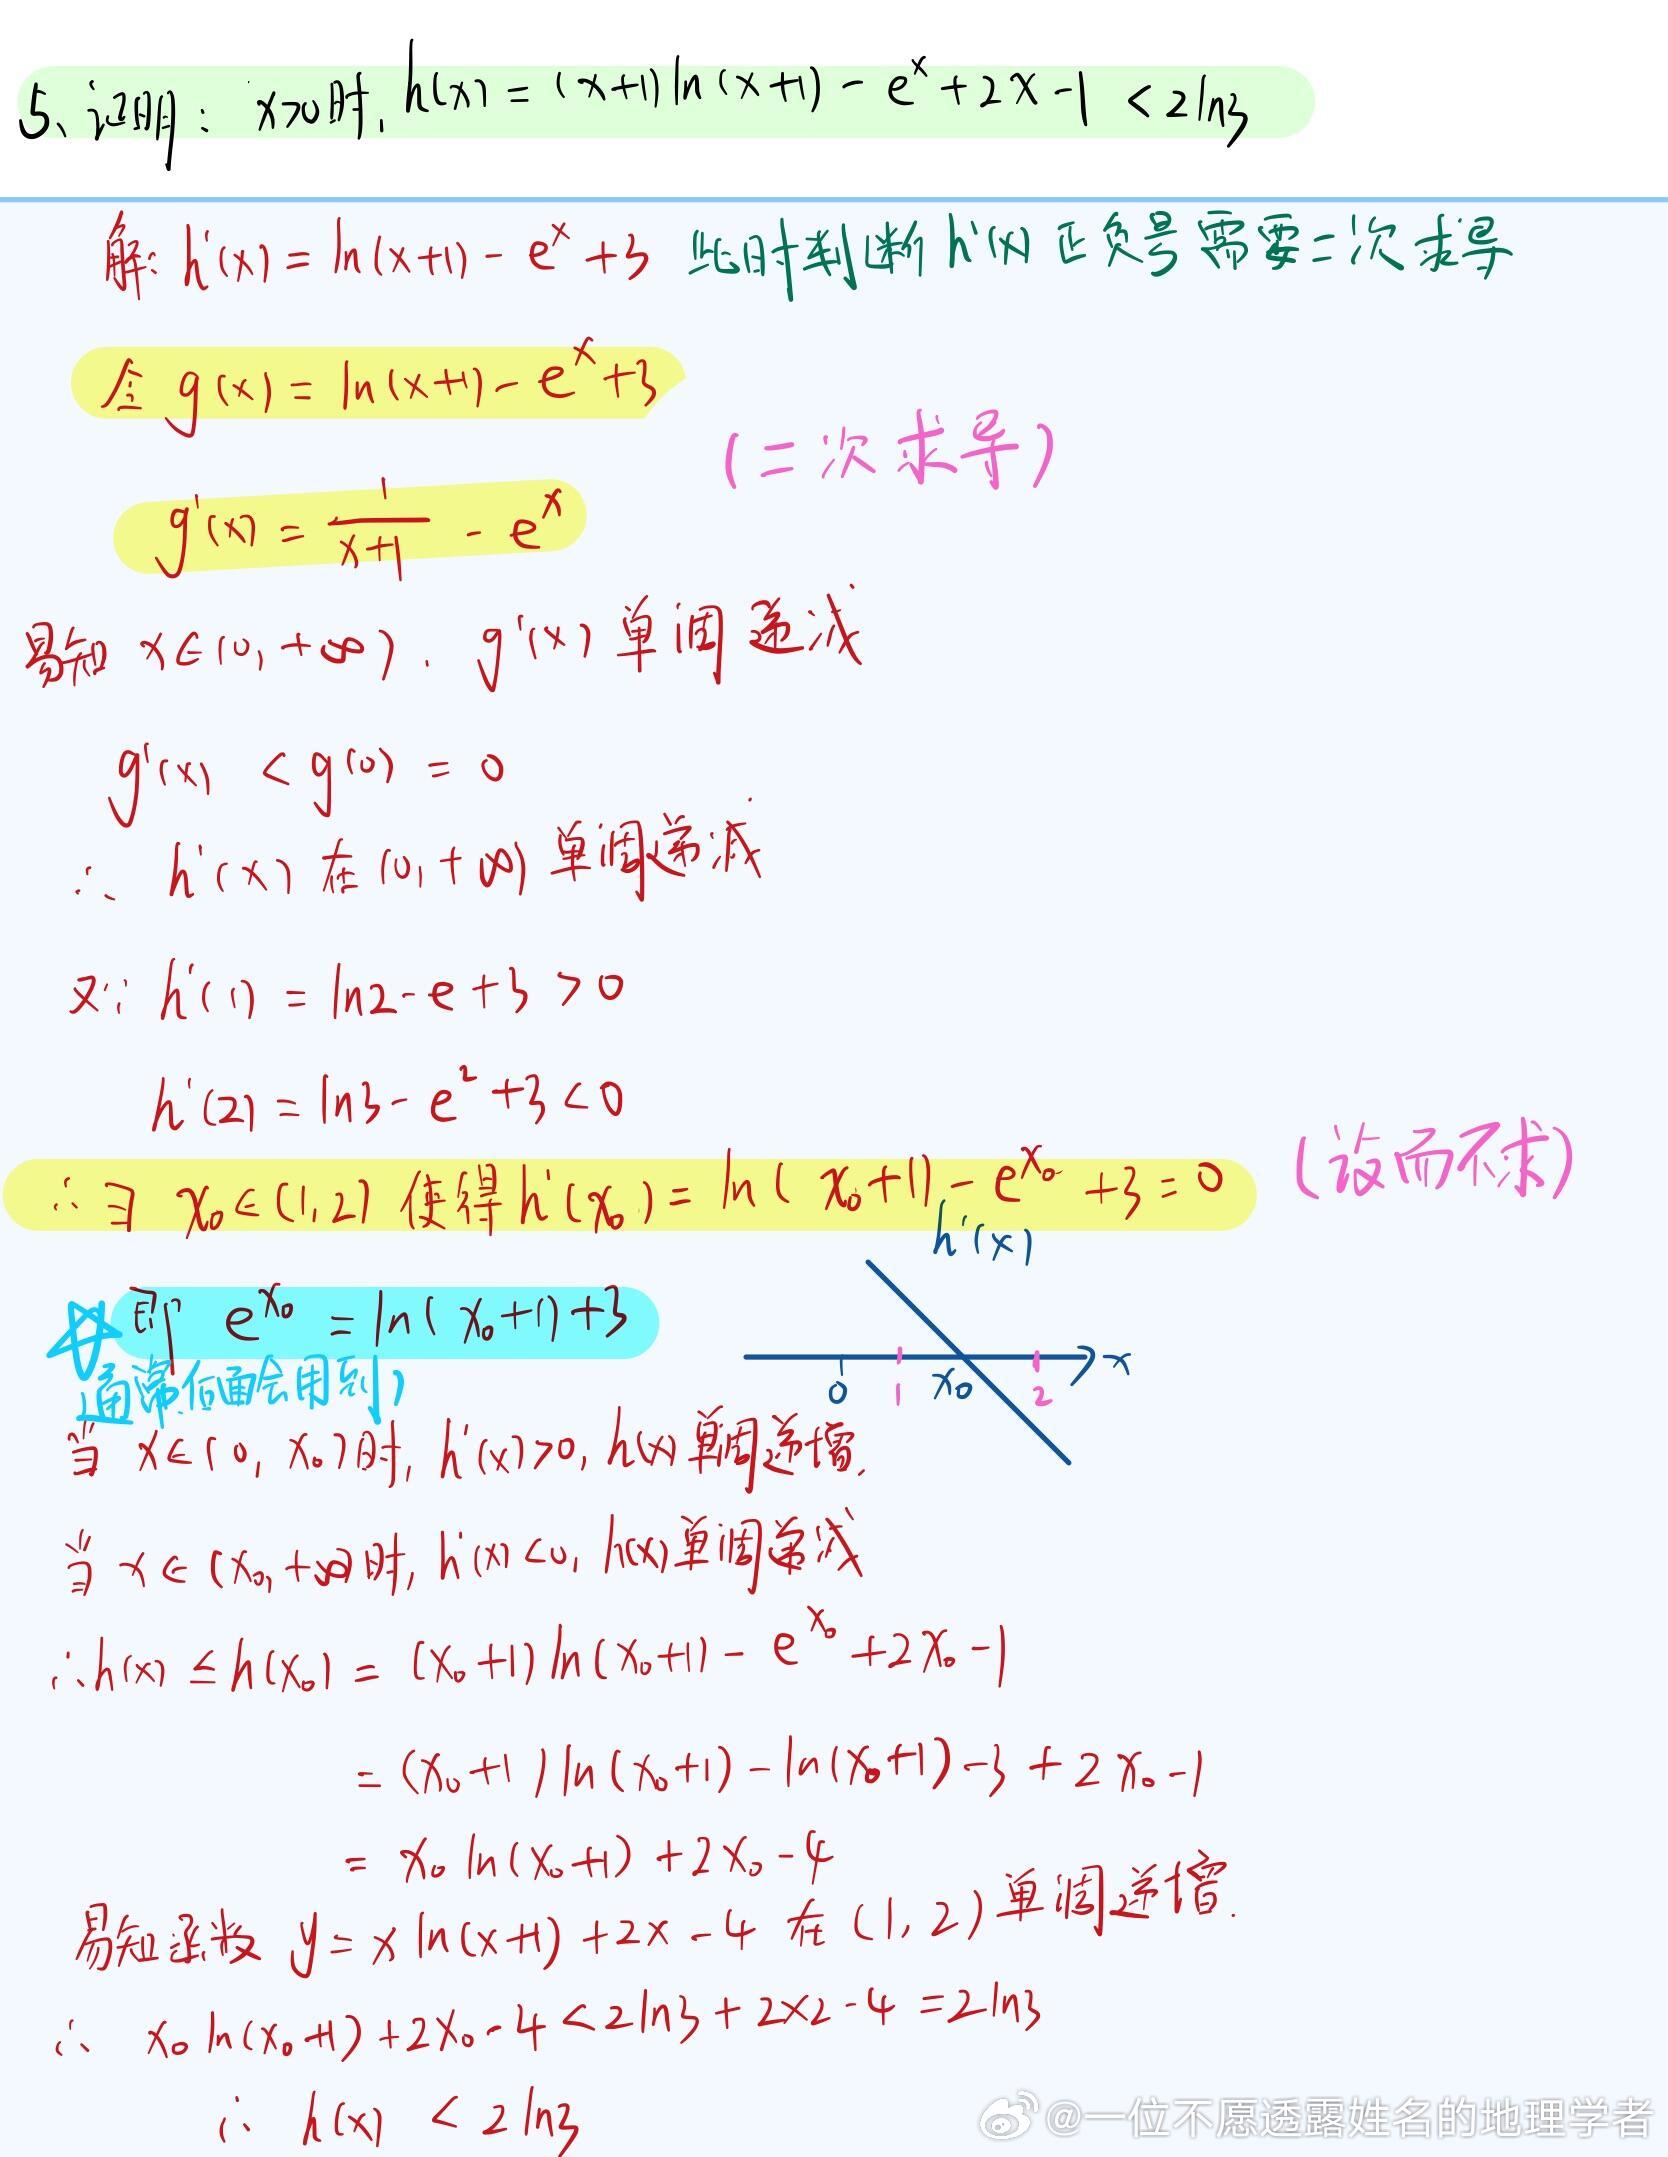 5、证明：x>0时，h(x) = (x+1)ln(x+1) - e^x + 2x - 1 < 2ln3
解：h'(x) = ln(x+1) - e^x + 3 此时判断h'(x)正负号需要二次求导
令 g(x) = ln(x+1) - e^x + 3
(二次求导)
g'(x) = 1/(x+1) - e^x
易知 x∈(0, +∞). g'(x) 单调递减
g'(x) < g(0) = 0
∴ h'(x) 在(0, +∞) 单调递减
又∵ h'(1) = ln2 - e + 3 > 0
h'(2) = ln3 - e² + 3 < 0
∴∃ x₀∈(1,2) 使得 h'(x₀) = ln(x₀+1) - e^x₀ + 3 = 0 (设而不求)
h'(x)
即 e^x₀ = ln(x₀+1) + 3
0 1 x₀ 2 x
通常后面会用到)
当 x∈(0, x₀)时, h'(x)>0, h(x)单调递增.
当 x∈(x₀, +∞)时, h'(x)<0, h(x)单调递减
∴h(x) ≤ h(x₀) = (x₀+1)ln(x₀+1) - e^x₀ + 2x₀ - 1
= (x₀+1)ln(x₀+1) - ln(x₀+1) - 3 + 2x₀ - 1
= x₀ ln(x₀+1) + 2x₀ - 4
易知函数 y = x ln(x+1) + 2x - 4 在(1,2)单调递增.
∴ x₀ ln(x₀+1) + 2x₀ - 4 < 2ln3 + 2×2 - 4 = 2ln3
∴ h(x) < 2ln3
@一位不愿透露姓名的地理学者